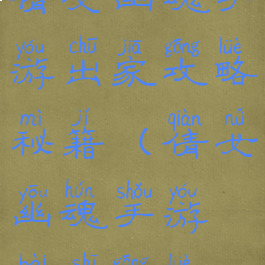 yóu chū jiā gōng lüè
游出家攻略
mì jí qiàn nǚ
秘籍(倩女
yōu hún shǒu yóu
幽魂手游